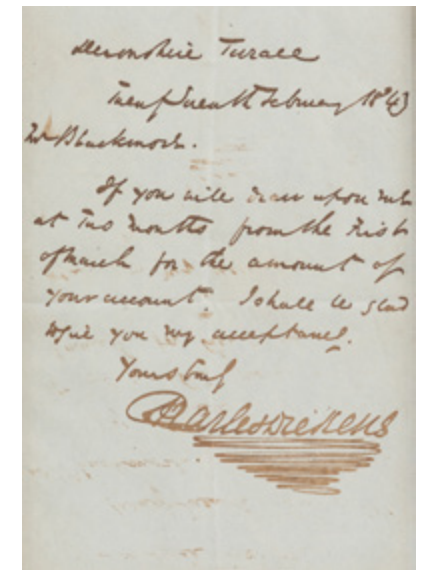 Devonshire Terrace
Twenty Seventh February 1843
Mr Blackmore.
If you will draw upon me
at two months from the First
of March for the amount of
your account. I shall be glad
to give you my acceptance.
Yours truly
Charles Dickens